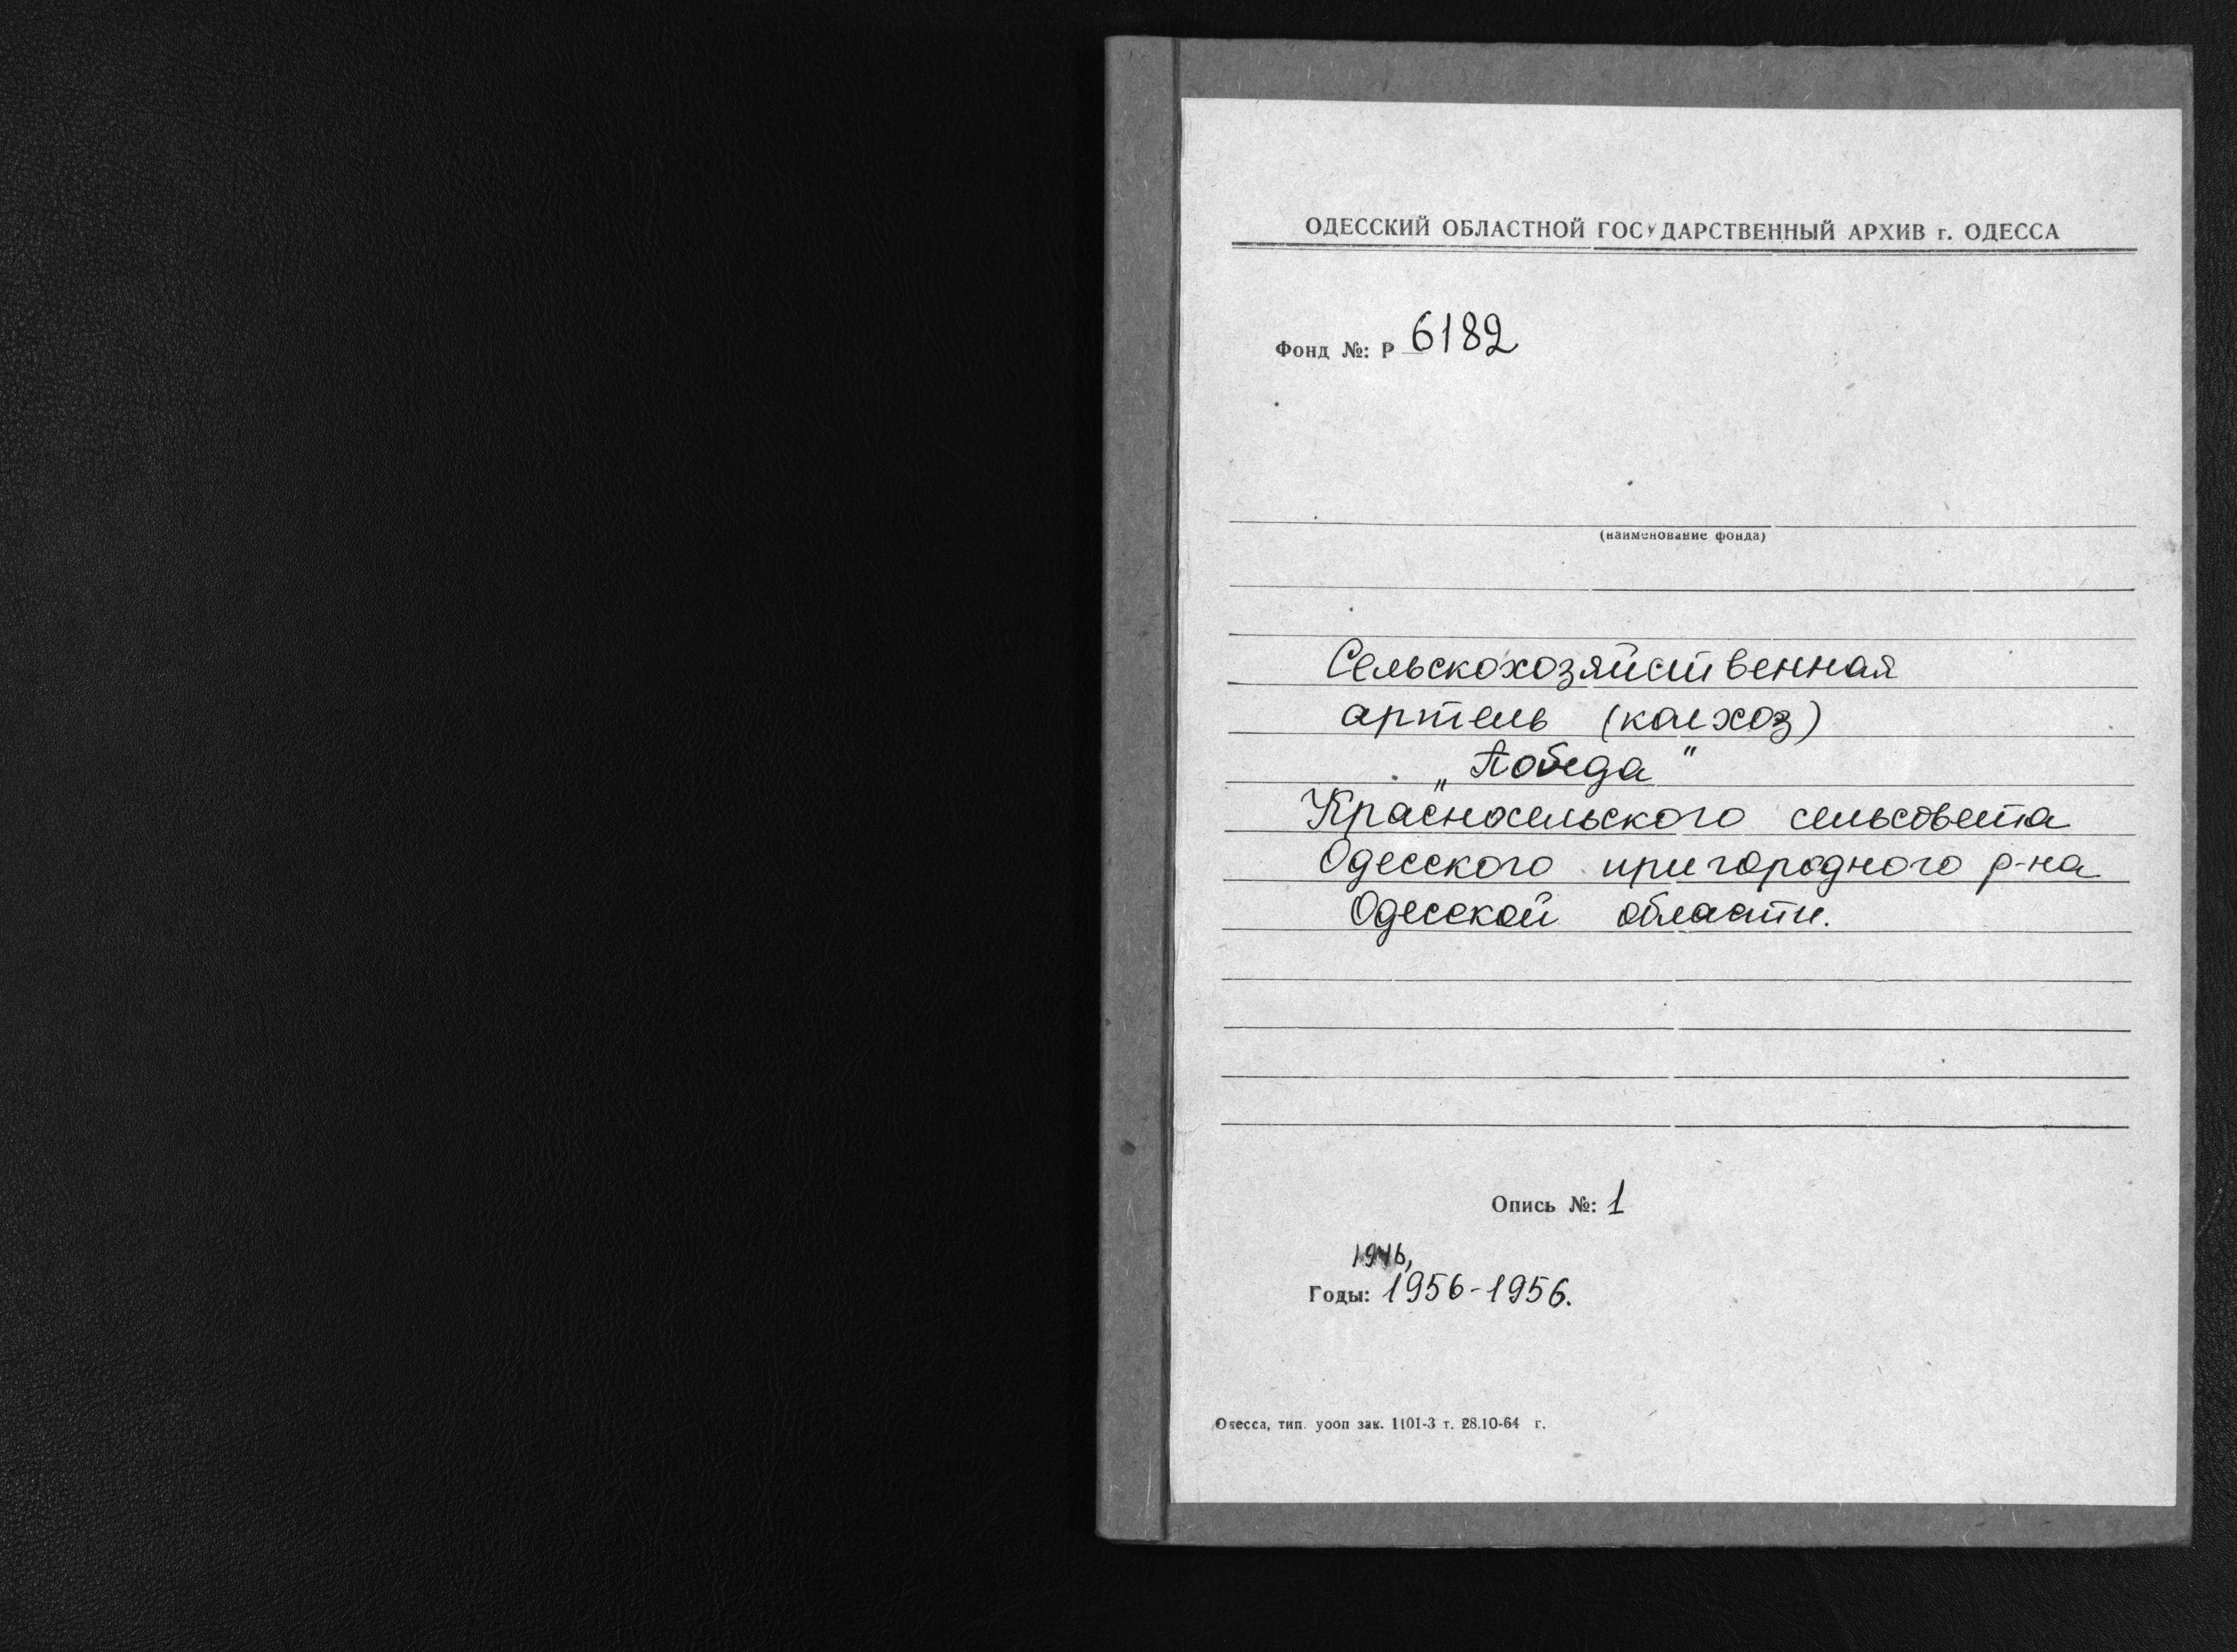 ОДЕССКИЙ ОБЛАСТНОЙ ГОСУДАРСТВЕННЫЙ АРХИВ г. ОДЕССА
Фонд №: Р 6182
(наименование фонда)
Сельскохозяйственная
артель (колхоз)
„Победа"
Красносельского сельсовета
Одесского пригородного р-на
Одесской области.
Опись №: 1
1946,
Годы: 1956-1956.
Одесса, тип. уооп зак. 1101-3 т. 28.10-64 г.